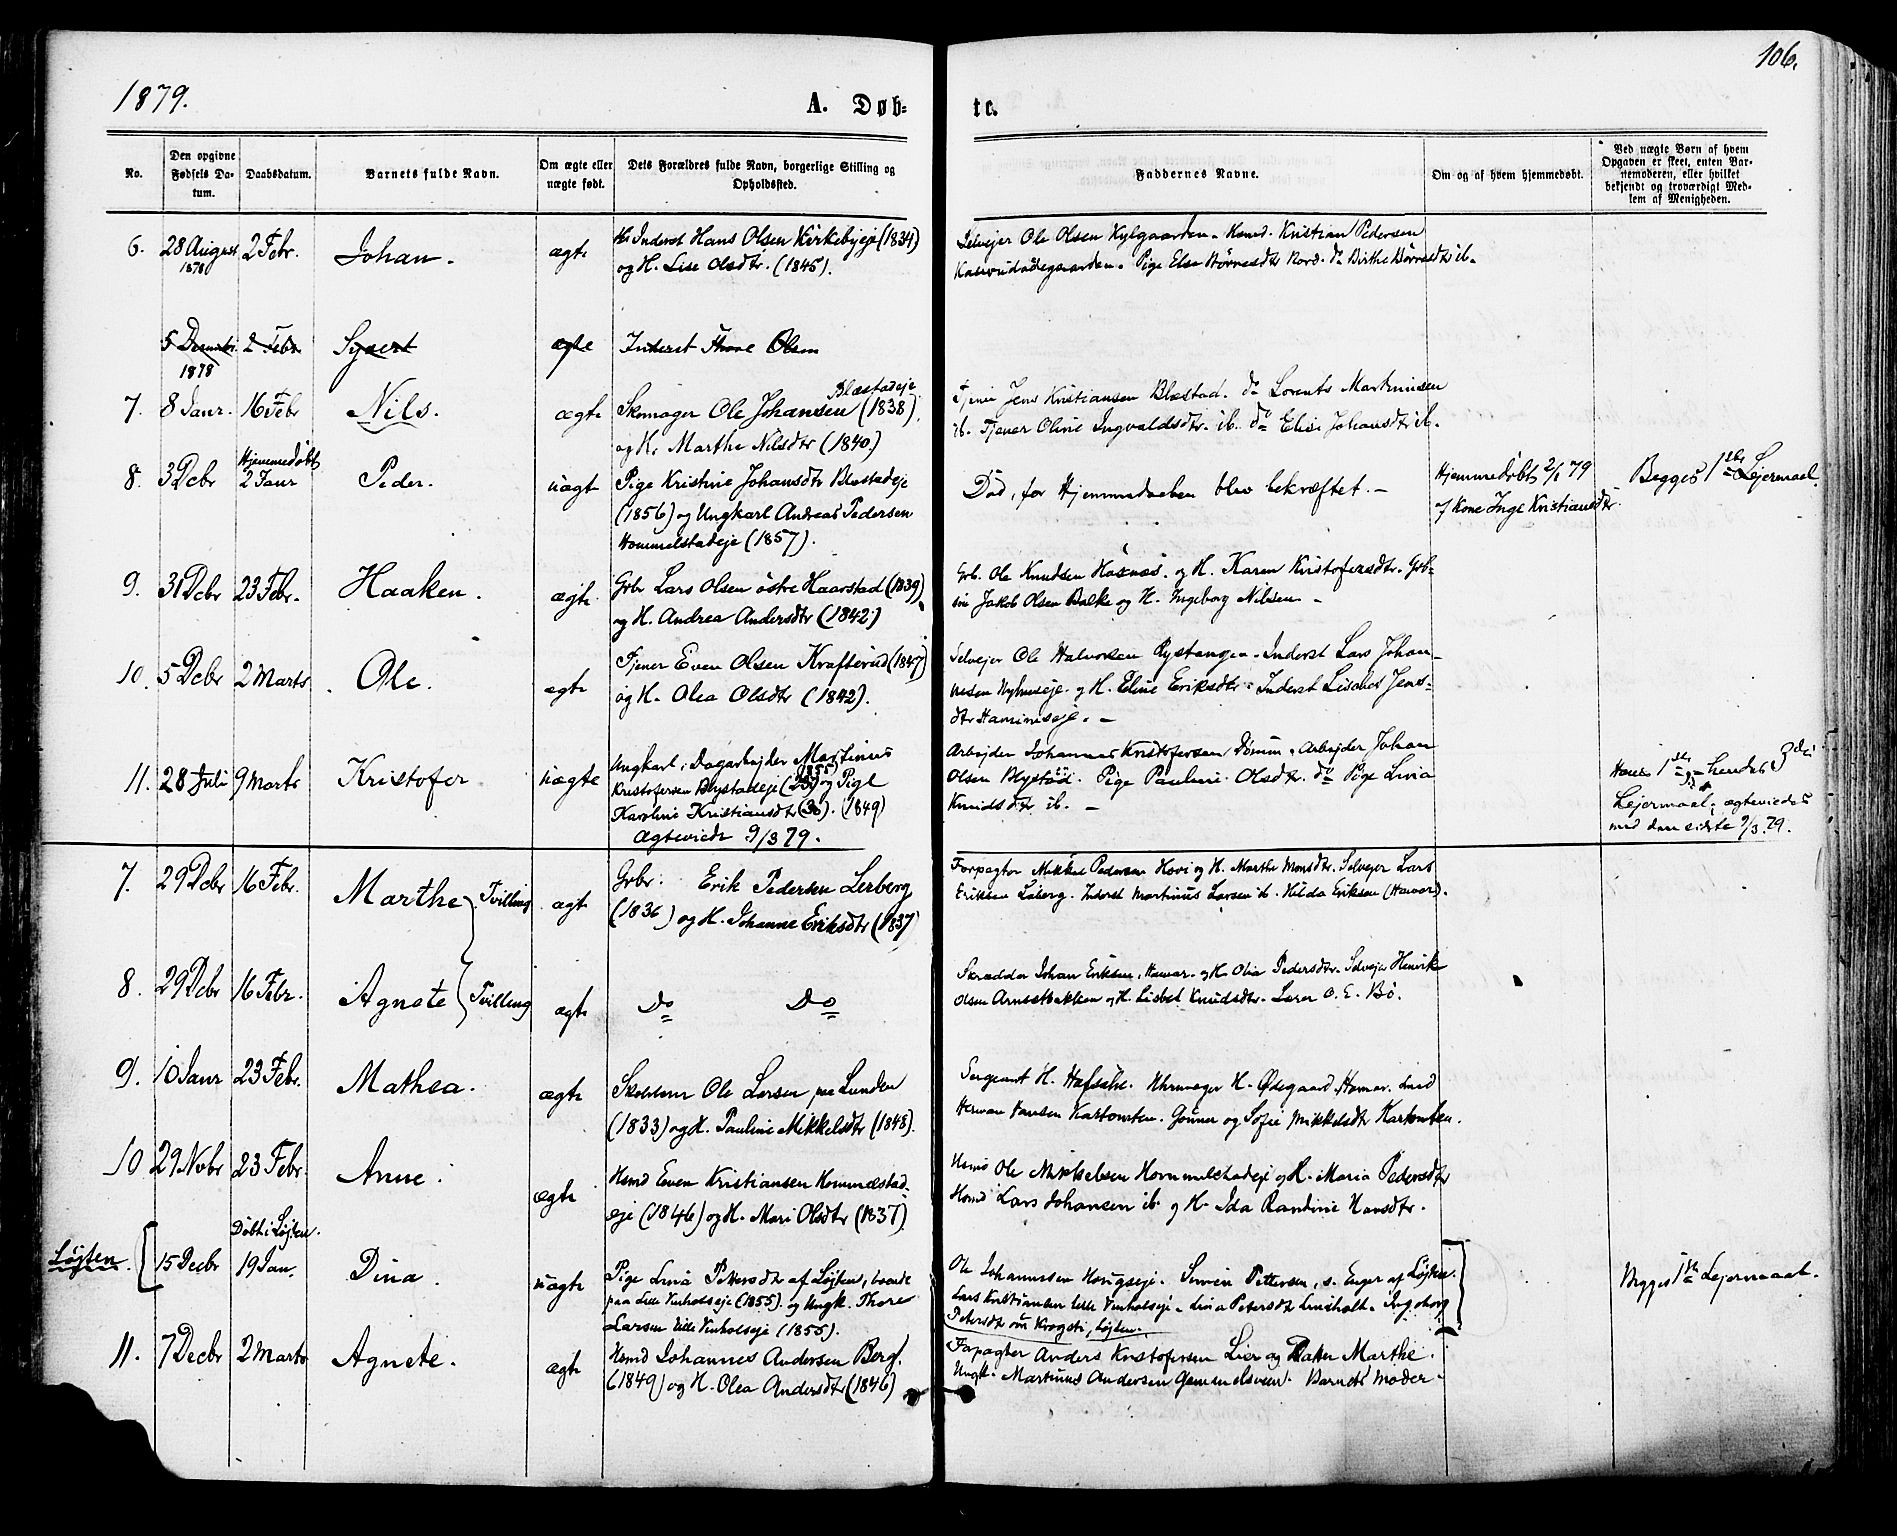 1879.
A. Døb-
te.
106.
No.
Den opgivne Fødsels Da-tum.
Daabsdatum.
Barnets fulde Navn.
Om ægte eller uægte født.
Dets Forældres fulde Navn, borgerlige Stilling og Opholdssted.
Faddernes Navne.
Om og af hvem hjemmedøbt.
Ved uægte Børn af hvem Opgaven er skeet, enten Bar-nemoderen, eller hvilket bekjendt og troværdigt Med-lem af Menigheden.
6. 28 August 1878 2 Febr. Johan. ægte
Inderst Hans Olsen Kirkebyeje (1834)
og H. Lise Olsdtr. (1845).
Selvejer Ole Olsen Kylgaarden. Kristian Pedersen
Pige Else Nord. do Birthe ib.
5 Decembr. 1878 2 Febr Syvert ægte Inderst Thore Olsen
7. 8 Janr. 16 Febr Nils. ægte
Blæstadeje
Skomager Ole Johansen (1838),
og K. Marthe Nilsdtr (1840.)
Jens Kristiansen Blæstad. do Lorents Martinusen
ib. Tjener Oline Ingvaldsdtr. ib. do Elise Johansdtr ib.
8. 3 Dcbr Hjemmedøbt 2 Janr Peder. uægte
Pige Kristine Johansdtr Blæstadeje
(1856) og Ungkarl Andreas Pedersen
Hommelstadeje (1857).
Død, før Hjemmedaaben blev bekræftet. —
Hjemmedøbt 2/1 79
af Kone Inge Kristiansdtr.
Begges 1ste Lejermaal.
9. 31 Dcbr 23 Febr. Haaken. ægte
Grbr Lars Olsen østre Haarstad (1839)
og H. Andrea Andersdtr (1842)
Grb. Ole Knudsen Hosnæs. og H. Karen Kristofersdtr.
Jakob Olsen Balke og H. Ingeborg Nilsen —
10. 5 Dcbr 2 Marts Ole. ægte
Tjener Even Olsen Krafterud (1847)
og H. Olea Olsdtr (1842).
Selvejer Ole Halvorsen Rystangen. Inderst Lars Johan-
nesen Nyhuseje. og H. Eline Eriksdtr. Inderst Jens-
dtr —
11. 28 Juli 9 Marts Kristofer uægte
Ungkarl, Dagarbejder Martinus
Kristofersen Blystadeje (1855) og Pige
Karoline Kristiansdtr (30). (1849)
Ægteviede 9/3 79.
Arbejder Johannes Kristofersen Arbejder Johan
Olsen Blystad. Pige Pauline Olsdtr. do Pige Lina
Knudsdtr ib. —
Hans 1ste og hendes 3die
Lejermaal; ægteviedes
med den sidste 9/3. 79.
7. 29 Dcbr 16 Febr. Marthe Tvilling ægte
Grbr. Erik Pedersen Lerberg
(1836) og H. Johanne Eriksdtr (1837)
Forpagter Mikkel Pedersen Hovi og H. Marthe Monsdtr. Selvejer Lars
Eriksen Inderst Martinus Larsen ib. Hilda Eriksen (Hamar).
8. 29 Dcbr 16 Febr. Agnete Tvilling ægte
Do Do
Skrædder Johan Eriksen, Hamar. og H. Olia Pedersdtr. Selvejer Henrik
Olsen Arnsetbakken og H. Lisbet Knudsdtr. Lærer O. E. Bö.
9. 10 Janr 23 Febr. Mathea. ægte
Ole Larsen, paa Lunden
(1833) og H. Pauline Mikkelsdtr (1848).
Sergeant H. Uhrmager H. Ødegaard, Hamar.
Herman Hansen og Sofie Mikkelsdtr
10 29 Nobr 23 Febr. Anne. ægte
Hsmd Even Kristiansen Hommelstad-
eje (1846) og H. Mari Olsdtr (1837)
Hsmd Ole Mikkelsen Hommelstadeje og H. Maria Pedersdtr
Hsmd Lars Johansen ib. og H. Ida Randine Hansdtr.
Løjten. 15 Decbr Døbt i Løjten. 19 Jan. Dina. uægte
Pige Lina Petersdtr af Løjten, boende
paa Lille Vinholseje (1855). og Ungk. Thore
Larsen Lille Vinholseje (1855).
Ole Johannesen Haugseje. Pettersen, s. Enger af Løjten.
Lars Kristiansen Lille Vinholseje. Lina Petersdtr Ingeborg
Petersdtr Løjten.
Begges 1ste Lejermaal.
11. 7 Decbr 2 Marts Agnete. ægte
Hsmd Johannes Andersen Berg.
(1849) og H. Olea Andersdtr (1846)
Forpagter Anders Kristofersen Lier og Datter Marthe.
Ungk. Martinus Andersen Gammelsveen. Barnets Moder.